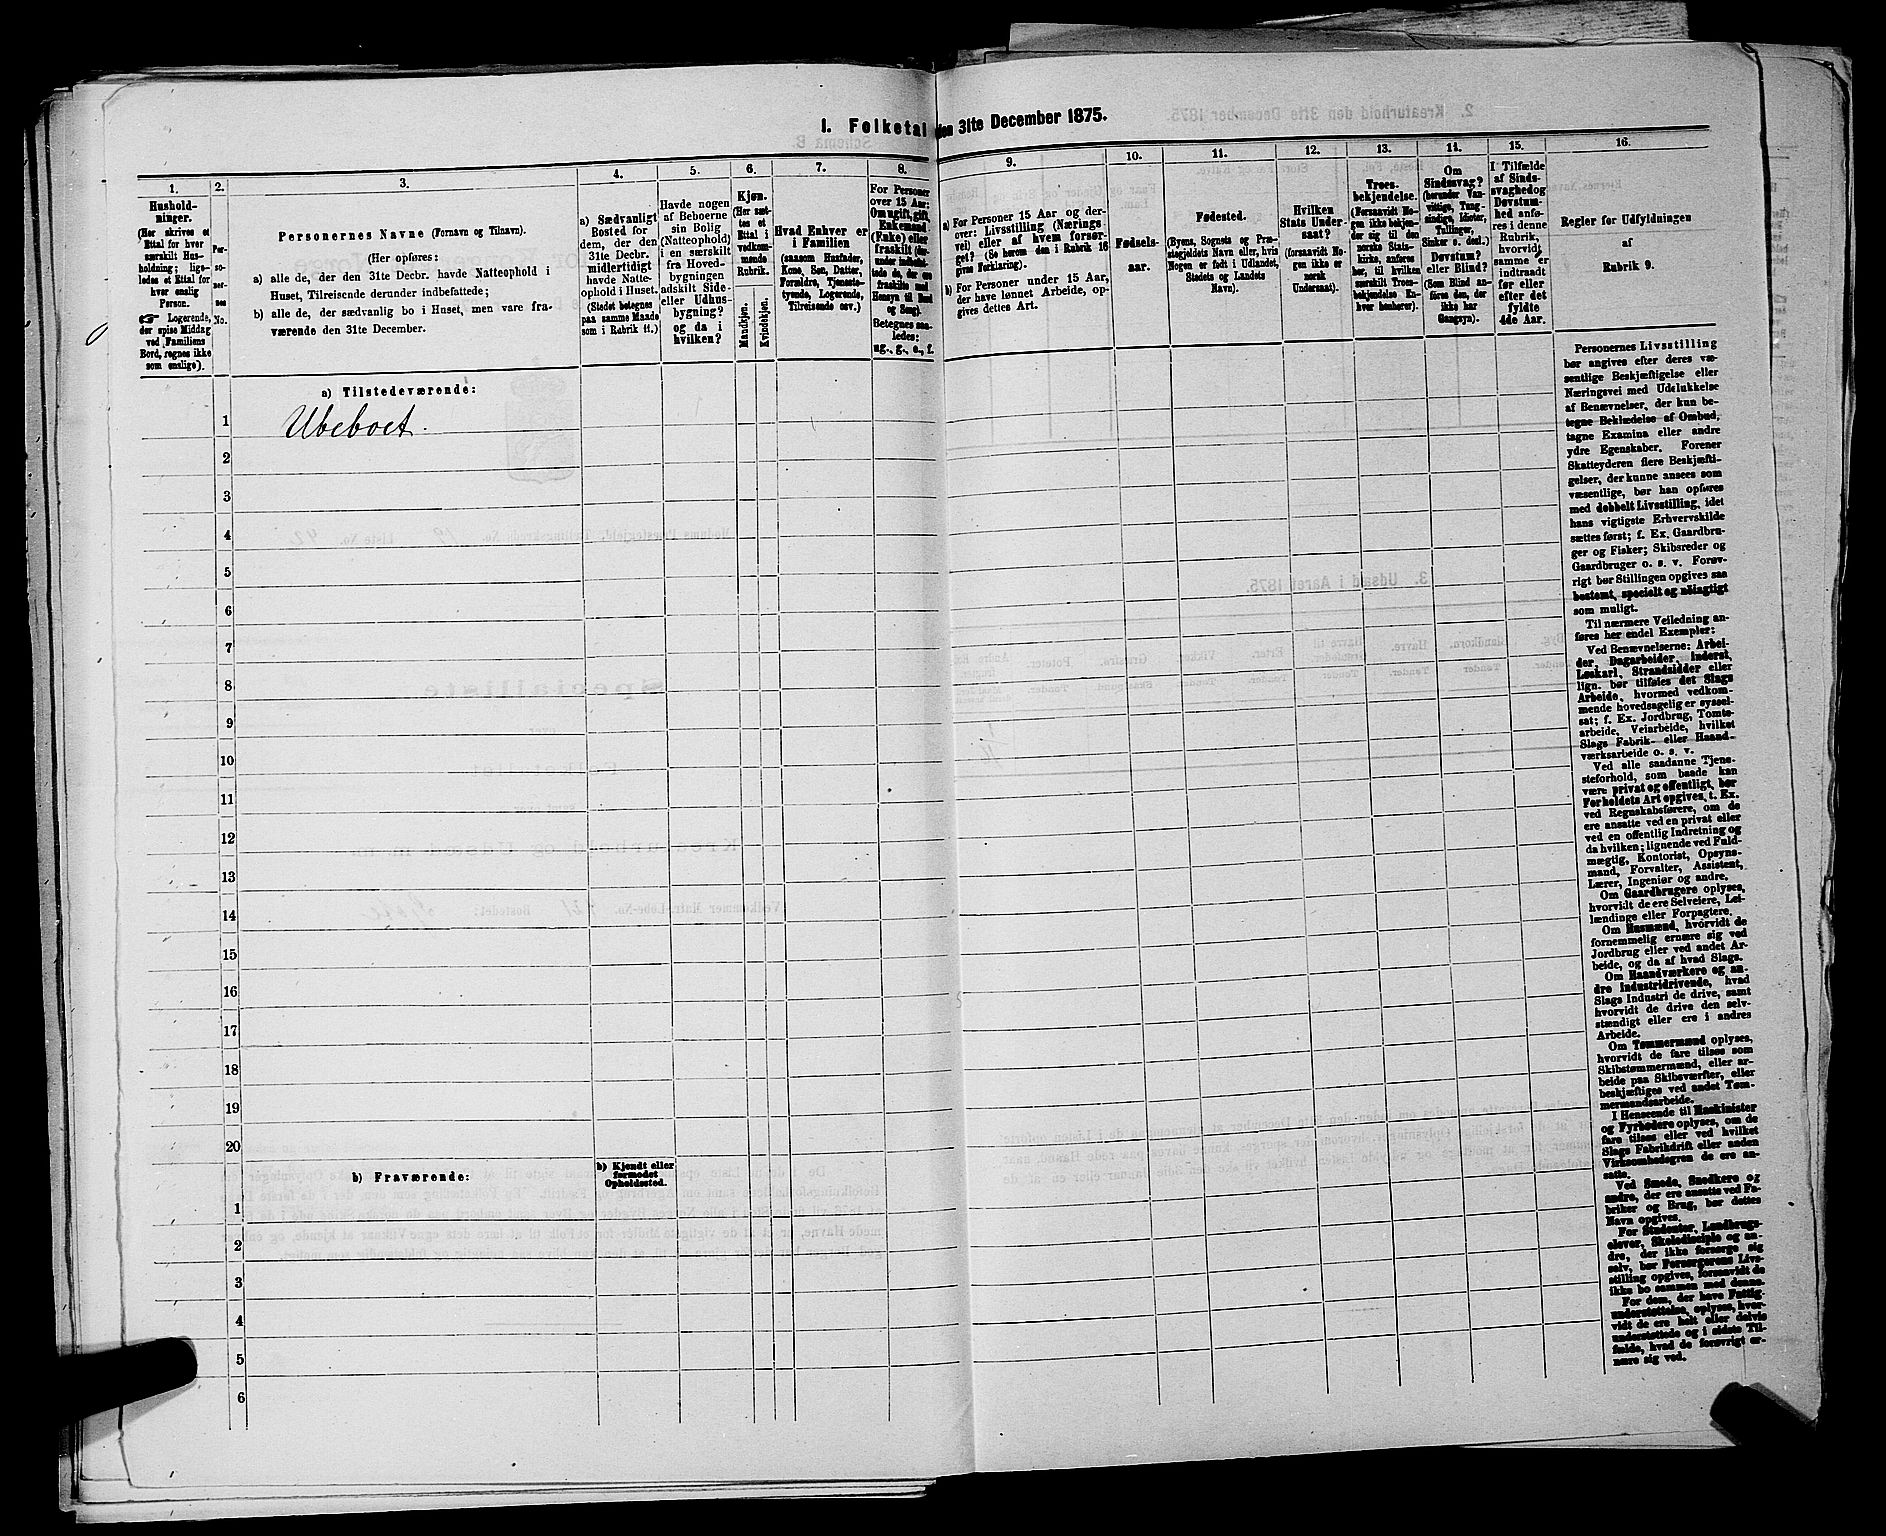 I. Folketal den 31te December 1875.
1.
2.
3.
4.
5.
6.
7.
8.
9.
10.
11.
12.
13.
14.
15.
16.
Hushold-
ninger.
(Her skrives et
Ettal for hver
særskilt Hus-
holdning; lige-
ledes et Ettal for
hver enslig
Person.
☞ Logerende,
der spise Middag
ved Familiens
Bord, regnes ikke
som enslige).
Per-
so-
ner-
nes
No.
Personernes Navne (Fornavn og Tilnavn).
(Her opføres:
a) alle de, der den 31te Decbr. havde Natteophold i
Huset, Tilreisende derunder indbefattede;
b) alle de, der sædvanlig bo i Huset, men vare fra-
værende den 31te December.
a) Sædvanligt
Bosted for
dem, der den
31te Decbr.
midlertidigt
havde Natte-
ophold i Huset.
(Stedet betegnes
paa samme Maade
som i Rubrik 11.)
Havde nogen
af Beboerne
sin Bolig
(Natteophold)
i en særskilt
fra Hoved-
bygningen
adskilt Side-
eller Udhus-
bygning?
og da i
hvilken?
Kjøn.
(Her sæt-
tes et
Ettal i
vedkom-
mende
Rubrik.)
Mandkjøn.
Kvindekjøn.
Hvad Enhver er
i Familien
(saasom Husfader,
Kone, Søn, Datter,
Forældre, Tjeneste-
tyende, Logerende,
Tilreisende osv.)
For Personer
over 15 Aar:
Om ugift, gift,
Enkemand
(Enke) eller
fraskilt
Betegnes saa-
ledes:
ug., g., e., f.
a) For Personer 15 Aar og der-
over: Livsstilling (Nærings-
vei) eller af hvem forsør-
get? (Se herom den i Rubrik 16
givne Forklaring).
b) For Personer under 15 Aar,
der have lønnet Arbeide, op-
gives dettes Art.
Fødsels-
aar.
Fødested.
(Byens, Sognets og Præ-
stegjeldets Navn eller, hvis
Nogen er født i Udlandet,
Stedets og Landets
Navn).
Hvilken
Stats Under-
saat?
(forsaavidt No-
gen ikke er
norsk
Undersaat).
Troes-
bekjendelse.
(Forsaavidt No-
gen ikke bekjen-
der sig til den
norske Stats-
kirke, anføres
her, til hvilken
særskilt Troes-
bekjendelse En-
hver henhører).
Om
Sindssvag?
(herunder Van-
vittige, Tung-
sindige, Idioter,
Tullinger,
Sinker o. desl.)
Døvstum?
eller Blind?
(Som Blind an-
føres den, der
ikke har
Gangsyn).
I Tilfælde
af Sinds-
svaghed og
Døvstum-
hed anfø-
res i denne
Rubrik,
hvorvidt
samme er
indtraadt
før eller
efter det
fyldte
4de Aar.
Regler for Udfyldningen
af
Rubrik 9.
a) Tilstedeværende:
1 Ubeboet.
2
3
4
5
6
7
8
9
10
11
12
13
14
15
16
17
18
19
20
b) Fraværende:
b) Kjendt eller
formodet
Opholdssted.
1
2
3
4
5
6
Personernes Livsstilling
bør angives efter deres væ-
sentlige Beskjæftigelse eller
Næringsvei med Udelukkelse
af Benævnelser, der kun be-
tegne Beklædelse af Ombud,
tagne Examina eller andre
ydre Egenskaber. Forener
Skatteyderen flere Beskjæfti-
gelser, der kunne ansees som
væsentlige, bør han opføres
med dobbelt Livsstilling, idet
hans vigtigste Erhvervskilde
sættes først; f. Ex. Gaardbru-
ger og Fisker; Skibsreder og
Gaardbruger o. s. v. Forøv-
rigt bør Stillingen opgives saa
bestemt, specielt og nøiagtigt
som muligt.
Til nærmere Veiledning an-
føres her endel Exempler:
Ved Benævnelserne: Arbei-
der, Dagarbeider, Inderst,
Løskarl, Strandsidder eller
lign. bør tilføies det Slags
Arbeide, hvormed vedkom-
mende hovedsagelig er syssel-
sat; f. Ex. Jordbrug, Tomte-
arbeide, Veiarbeide, hvilket
Slags Fabrik- eller Haand-
værksarbeide o. s. v.
Ved alle saadanne Tjene-
steforhold, som baade kan
være privat og offentligt, bør
Forholdets Art opgives, t. Ex.
ved Regnskabsførere, om de
ere ansatte ved en privat eller
ved en offentlig Indretning og
da hvilken; lignende ved Fuld-
mægtig, Kontorist, Opsyns-
mand, Forvalter, Assistent,
Lærer, Ingeniør og andre.
Om Gaardbrugere oplyses,
hvorvidt de ere Selveiere, Lei-
lændinge eller Forpagtere.
Om Husmænd, hvorvidt de
fornemmelig ernære sig ved
Jordbrug eller ved andet Ar-
beide, og da af hvad Slags.
Om Haandværkere og an-
dre Industridrivende, hvad
Slags Industri de drive, samt
hvorvidt de drive den selv-
stændigt eller ere i andres
Arbeide.
Om Tømmermænd oplyses,
hvorvidt de fare tilsøs som
Skibstømmermænd, eller ar-
beide paa Skibsværfter, eller
beskjæftiges ved andet Tøm-
mermandsarbeide.
I Henseende til Maskinister
og Fyrbødere oplyses, om de
fare tilsøs eller ved hvilket
Slags Fabrikdrift eller anden
Virksomhedsgren de ere an-
satte.
Ved Smede, Snedkere og
andre, der ere ansatte ved Fa-
briker og Brug, bør dettes
Navn opgives.
For Studenter, Landbrugs-
elever, Skoledisciple og an-
dre, der ikke forsørge sig
selv, bør Forsørgerens Livs-
stilling opgives, forsaavidt de
ikke bo sammen med denne.
For dem, der have Fattig-
understøttelse, oplyses, hvor-
vidt de ere helt eller delvis
understøttede og i sidste Til-
fælde, hvad de forøvrigt er-
nære sig ved.